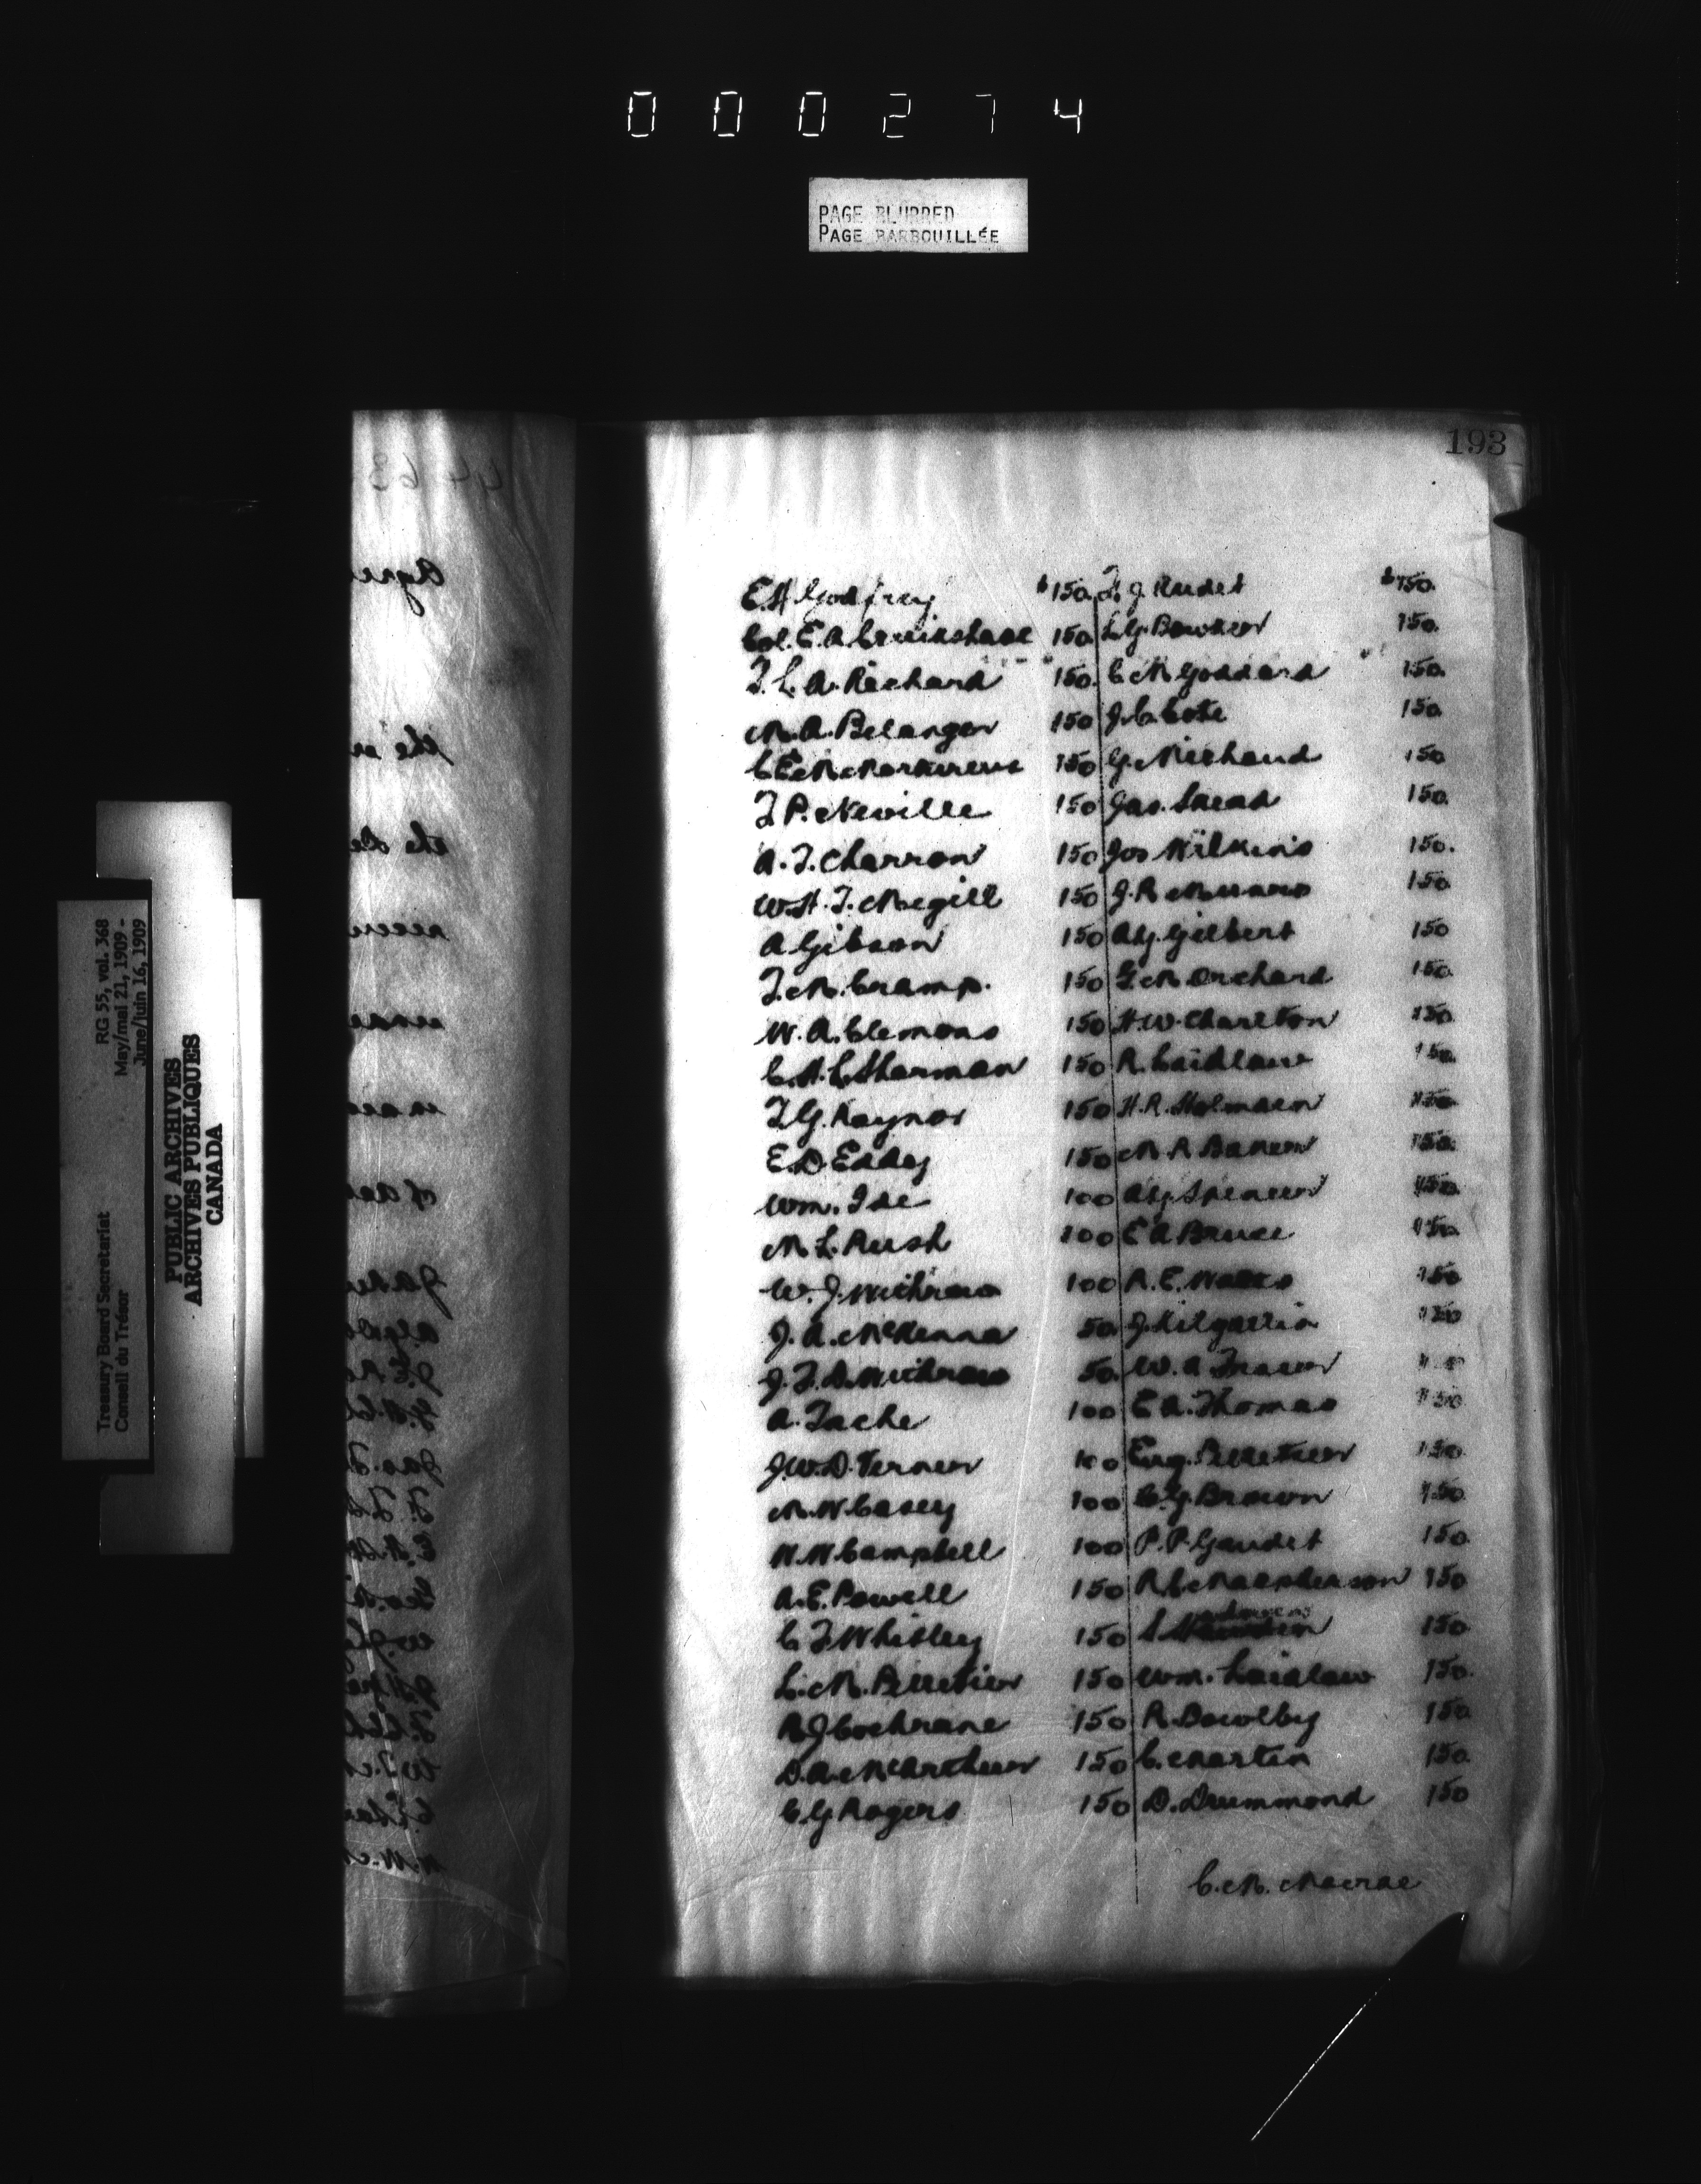 000274
PAGE BLURRED
PAGE BARBOUILLÉE
RG 55, vol. 368
May/mai 21, 1909 -
June/juin 16, 1909
Treasury Board Secretariat
Conseil du Trésor
PUBLIC ARCHIVES
ARCHIVES PUBLIQUES
CANADA
193
E.H. Godfrey $150. J. Audet $150.
Col. E.A. Cruikshank 150. 150.
T.L.A. Richard 150. C M Goddard 150.
M.A. Belanger 150 J.C. Cote 150.
150 G. Michaud 150
T.P. Neville 150 Jas. Snead 150.
A.T. Charron 150 Jos Wilkins 150.
W.H.T. Megill 150 J.R. Munro 150.
A Gibson 150 A.G. Gilbert 150
T.M. Cramp. 150 F.M. Orchard 150.
W.A. Clemons 150 H.W. Charlton 150.
C.H.L. Sharman 150 R. Laidlaw 150.
T.G. Raynor 150 H.R. Holmden 150
E.D. Eddy 150 150.
Wm. Ide 100 A.G. Spencer 150.
M L. Rush 100 E A Bruce 150.
W.J. 100 R.E. Watts 150
J.A. McKenna 50. J. Kilgallin 150
J.T.D. 50. W.A. Fraser
A. Tache 100 E A. Thomas 150
J.W.D. Verner 100 Eug. Pelletier 150
M.W. Casey 100 C.G. Brown 150.
W.W. Campbell 100 P.P. Gaudet 150.
A.E. Powell 150 R.C. Macpherson 150
C F Whitley 150 150
L.M. Pelletier 150 Wm. Laidlaw 150.
R J Cochrane 150 R. Dowlby 150
D.A. McArthur 150 C. Martin 150.
C.G. Rogers 150 D. Drummond 150
C.M. Macrae